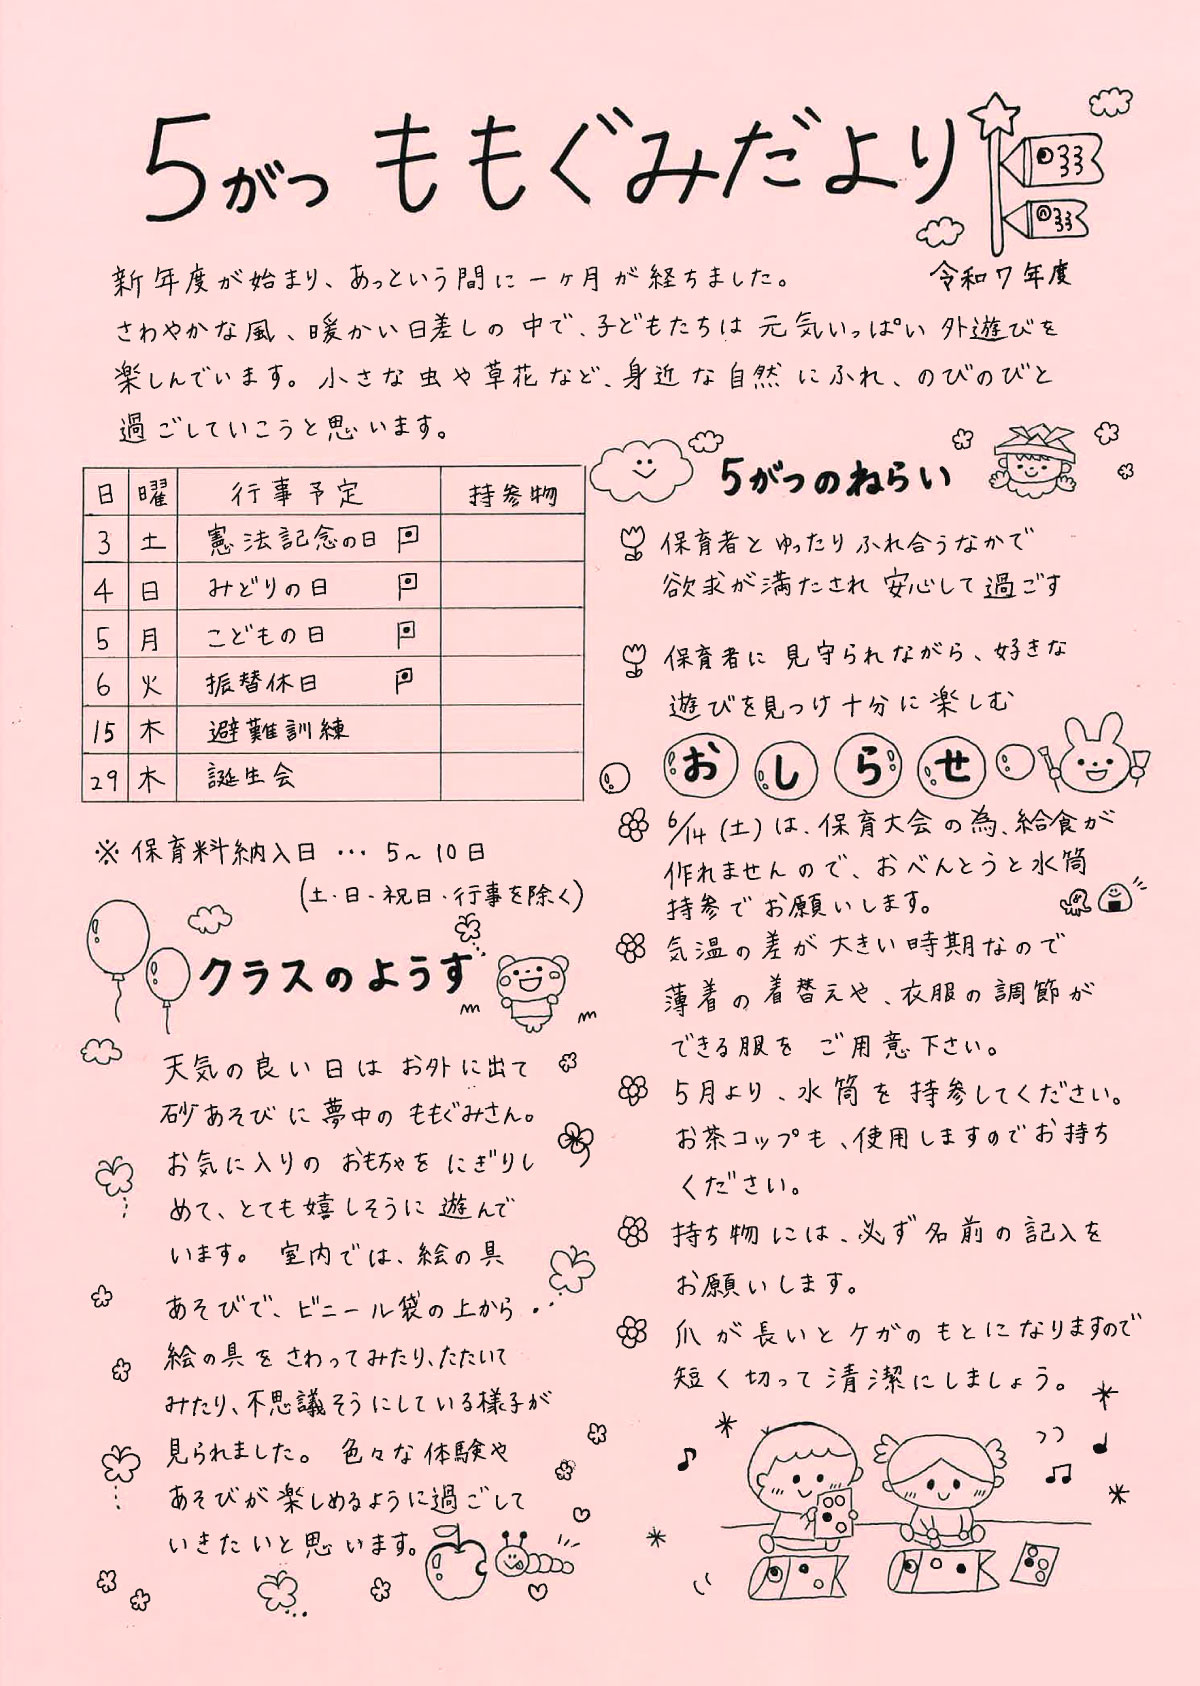 5がつ ももぐみだより
令和7年度
新年度が始まり、あっという間に一ヶ月が経ちました。
さわやかな風、暖かい日差しの中で、子どもたちは元気いっぱい外遊びを
楽しんでいます。小さな虫や草花など、身近な自然にふれ、のびのびと
過ごしていこうと思います。
日 曜 行事予定 持参物
3 土 憲法記念の日
4 日 みどりの日
5 月 こどもの日
6 火 振替休日
15 木 避難訓練
29 木 誕生会
※保育料納入日 … 5~10日
(土・日・祝日・行事を除く)
クラスのようす
天気の良い日はお外に出て
砂あそびに夢中のももぐみさん。
お気に入りのおもちゃをにぎりし
めて、とても嬉しそうに遊んで
います。室内では、絵の具
あそびで、ビニール袋の上から
絵の具をさわってみたり、たたいて
みたり、不思議そうにしている様子が
見られました。色々な体験や
あそびが楽しめるように過ごして
いきたいと思います。
5がつのねらい
保育者とゆったりふれ合うなかで
欲求が満たされ安心して過ごす
保育者に見守られながら、好きな
遊びを見つけ十分に楽しむ
おしらせ
6/14(土)は、保育大会の為、給食が
作れませんので、おべんとうと水筒
持参でお願いします。
気温の差が大きい時期なので
薄着の着替えや、衣服の調節が
できる服をご用意下さい。
5月より、水筒を持参してください。
お茶コップも、使用しますのでお持ち
ください。
持ち物には、必ず名前の記入を
お願いします。
爪が長いとケガのもとになりますので
短く切って清潔にしましょう。